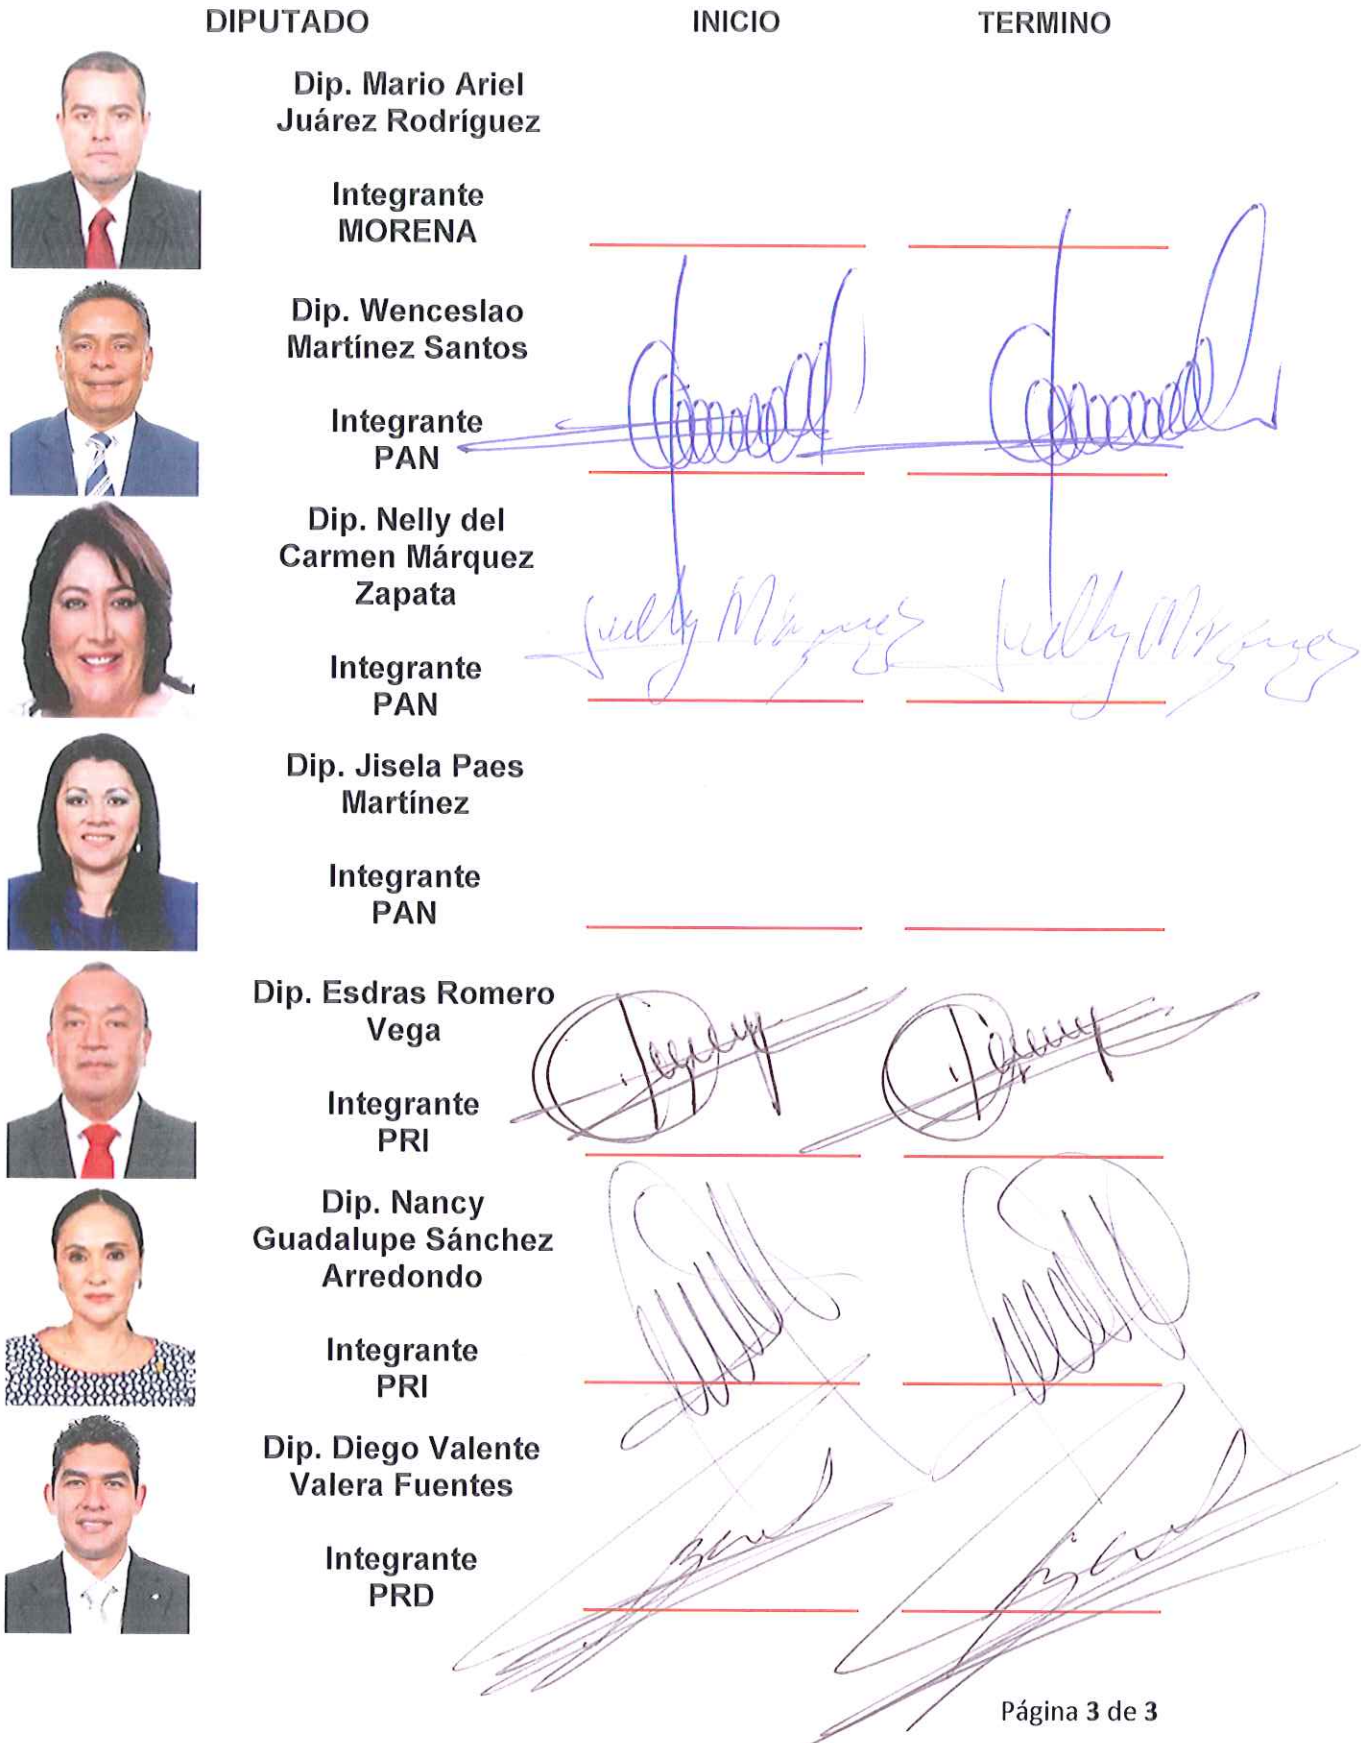 DIPUTADO INICIO TERMINO
Dip. Mario Ariel
Juárez Rodríguez
Integrante
MORENA
Dip. Wenceslao
Martínez Santos
Integrante
PAN
Dip. Nelly del
Carmen Márquez
Zapata
Nelly Márquez Nelly Márquez
Integrante
PAN
Dip. Jisela Paes
Martínez
Integrante
PAN
Dip. Esdras Romero
Vega
Integrante
PRI
Dip. Nancy
Guadalupe Sánchez
Arredondo
Integrante
PRI
Dip. Diego Valente
Valera Fuentes
Integrante
PRD
Página 3 de 3